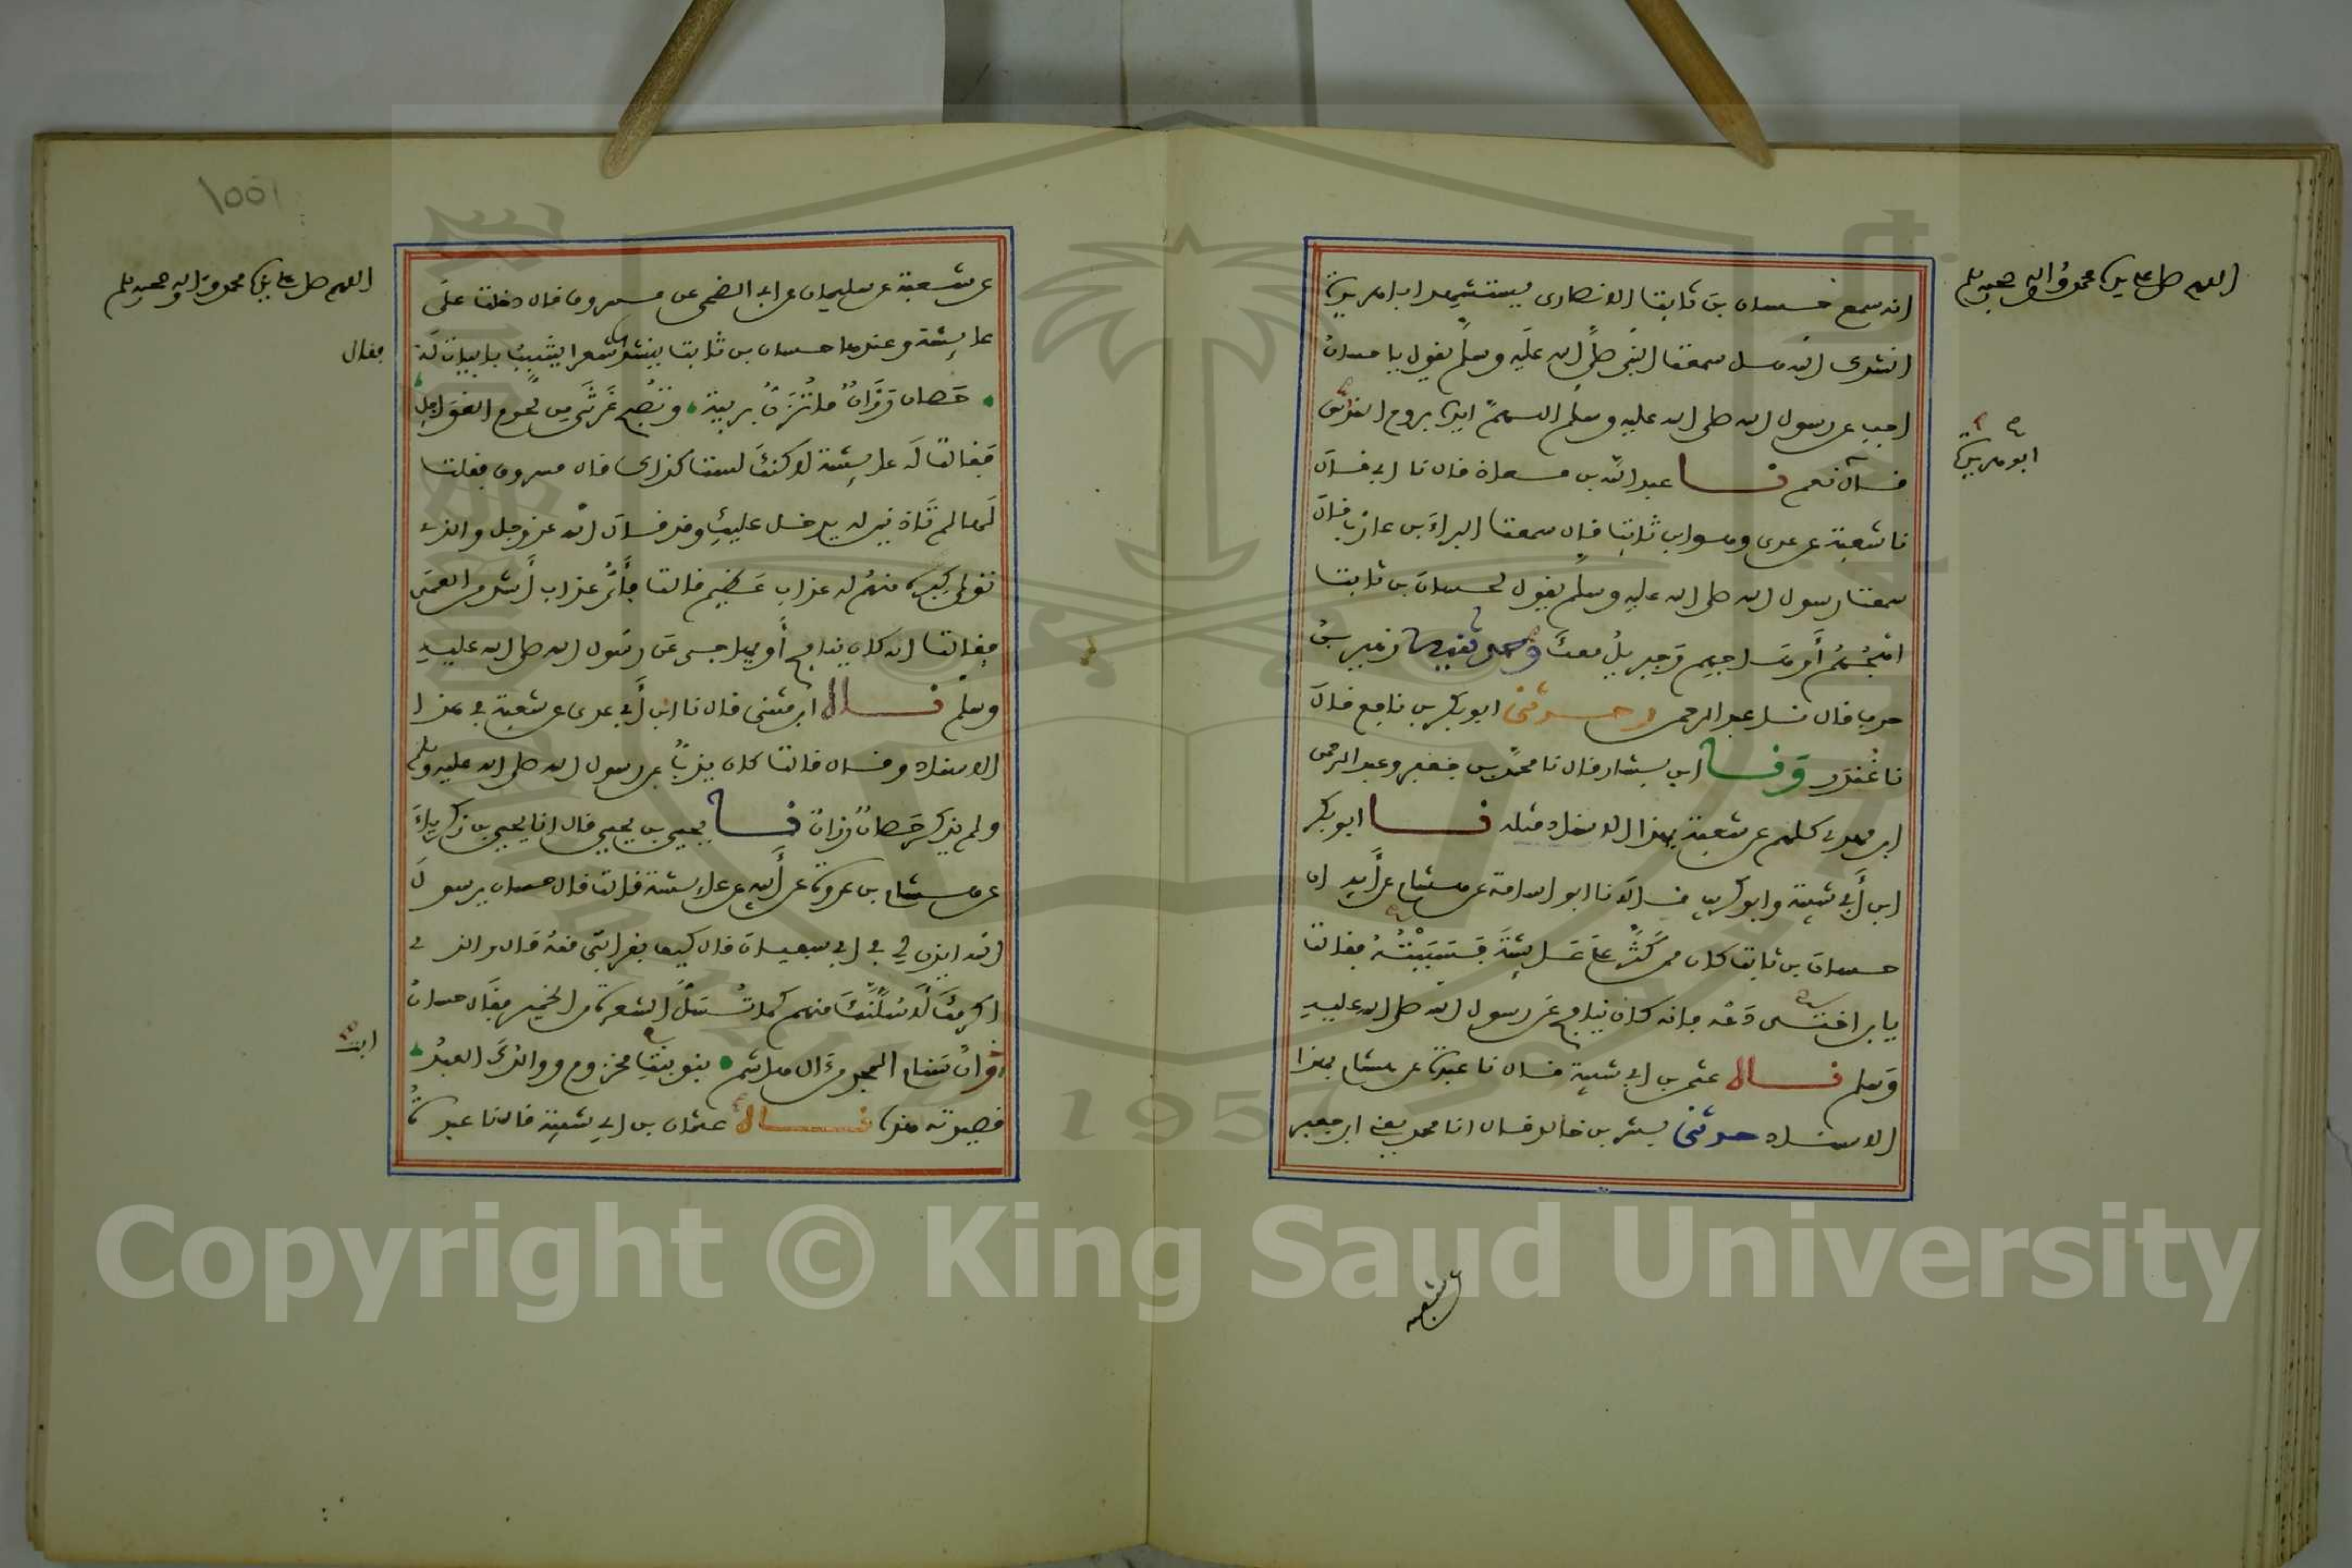 اللهم صل على سيدنا محمد وآله وصحبه وسلم
انه سمع حسان بن ثابت الانصارى يستشهد ابا هريرة
انشدك الله هل سمعت النبى صلى الله عليه وسلم يقول يا حسان
اجب عن رسول الله صلى الله عليه وسلم اللهم ايده بروح القدس
ابو هريرة
قال نعم نا عبيد الله بن معاذ قال نا ابى قال
نا شعبة عن عدى وهو ابن ثابت قال سمعت البراء بن عازب قال
سمعت رسول الله صلى الله عليه وسلم يقول لحسان بن ثابت
اهجهم أو هاجهم وجبريل معك وحدثنيه زهير بن
حرب قال نا عبد الرحمن ح وحدثنى ابو بكر بن نافع قال
نا غندر ونا ابن بشار قال نا محمد بن جعفر وعبد الرحمن
ابن مهدى كلهم عن شعبة بهذا الاسناد مثله نا ابو بكر
ابن أبى شيبة وابو كريب قالا نا ابو اسامة عن هشام عن أبيه ان
حسان بن ثابت كان ممن كثر على عايشة فسببته فقالت
يا بن اختى دعه فانه كان ينافح عن رسول الله صلى الله عليه
وسلم نا عثمن بن ابى شيبة قال نا عبدة عن هشام بهذا
الاسناد حدثنى بشر بن خالد قال انا محمد يعنى ابن جعفر
عن شعبة
١٥٥١
اللهم صل على سيدنا محمد وآله وصحبه وسلم
عن شعبة عن سليمان عن ابى الضحى عن مسروق قال دخلت على
عايشة وعندها حسان بن ثابت ينشدها شعرا يشبب بابيات له
فقال
حصان رزان ما تزن بريبة وتصبح غرثى من لحوم الغوافل
فقالت له عايشة لاكنك لست كذلك قال مسروق فقلت
لها لم تاذنين له يدخل عليك وقد قال الله عز وجل والذى
تولى كبره منهم له عذاب عظيم قالت فأى عذاب أشد من العمى
فقالت انه كان ينافح أو يهاجى عن رسول الله صلى الله عليه
وسلم نا ابن مثنى قال نا ابن أبى عدى عن شعبة فى هذا
الاسناد وقال قالت كان يذب عن رسول الله صلى الله عليه وسلم
ولم يذكر حصان رزان نا يحيى بن يحيى قال انا يحيى بن زكرياء
عن هشام بن عروة عن أبيه عن عايشة قالت قال حسان يرسول
الله ايذن لى فى ابى سفيان قال كيف بقرابتى منه قال والذى
اكرمك لأسلنك منهم كما تسل الشعرة من الخمير فقال حسان
وان سنام المجد من آل هاشم بنو بنت مخزوم ووالدك العبد
قصيدته هذه نا عثمان بن ابى شيبة قال نا عبدة
Copyright © King Saud University
1957